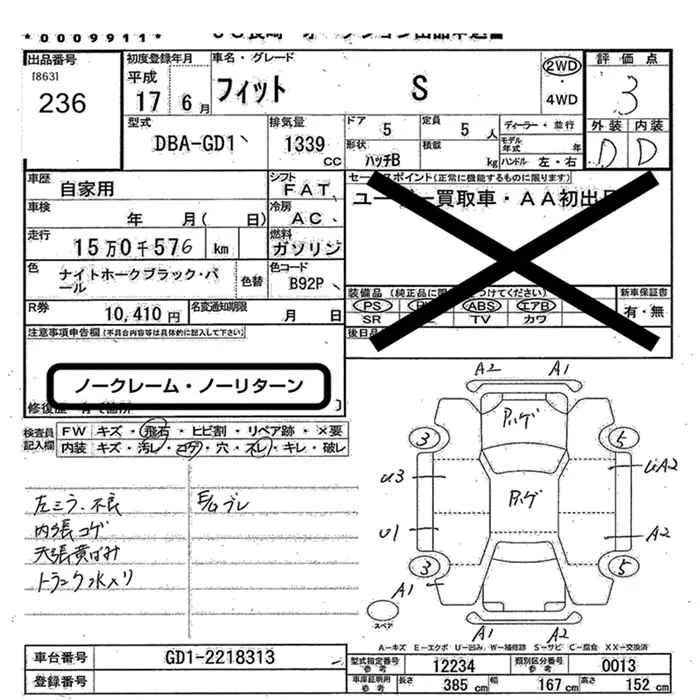 *0009911*
出品番号
[863]
236
初度登録年月
平成
17 6月
車名・グレード
フィット S
2WD
・
4WD
評価点
3
外装 内装
D D
型式
DBA-GD1
排気量
1339
CC
ドア 5
定員 5人
ディーラー・並行
形状
ハッチB
積載
kg
モデル年式 年
ハンドル 左・右
車歴
自家用
シフト
FAT
車検
年 月( 日)
冷房
AC
走行
15万0千576 km
燃料
ガソリン
色
ナイトホークブラック・パール
色替
色コード
B92P
R券
10,410円
名変通知期限
月 日
セールスポイント(正常に機能するものに限ります)
ユーザー買取車・AA初出
装備品(純正品に限 つけてください)
PS ABS エアB
SR TV カワ
新車保証書
有・無
後日品
注意事項申告欄(不具合内容等は具体的に記入して下さい)
ノークレーム・ノーリターン
修復歴
検査員記入欄
FW キズ・飛石・ヒビ割・リペア跡・×要
内装 キズ・汚レ・コゲ・穴・スレ・キレ・破レ
左ミラー不良
内張コゲ
天張黄ばみ
トランク水入リ
E/Gブレ
A2 A1
ハゲ
3 5
U3
UA2
ハゲ
U1
A2
3 5
A1
スペア
A1 A2
A-キズ E-エクボ U-凹み W-補修跡 S-サビ C-腐食 XX-交換済
車台番号
GD1-2218313
登録番号
型式指定番号
参考
12234
類別区分番号
参考
0013
車庫証明用
参考
長さ 385cm
幅 167cm
高さ 152cm